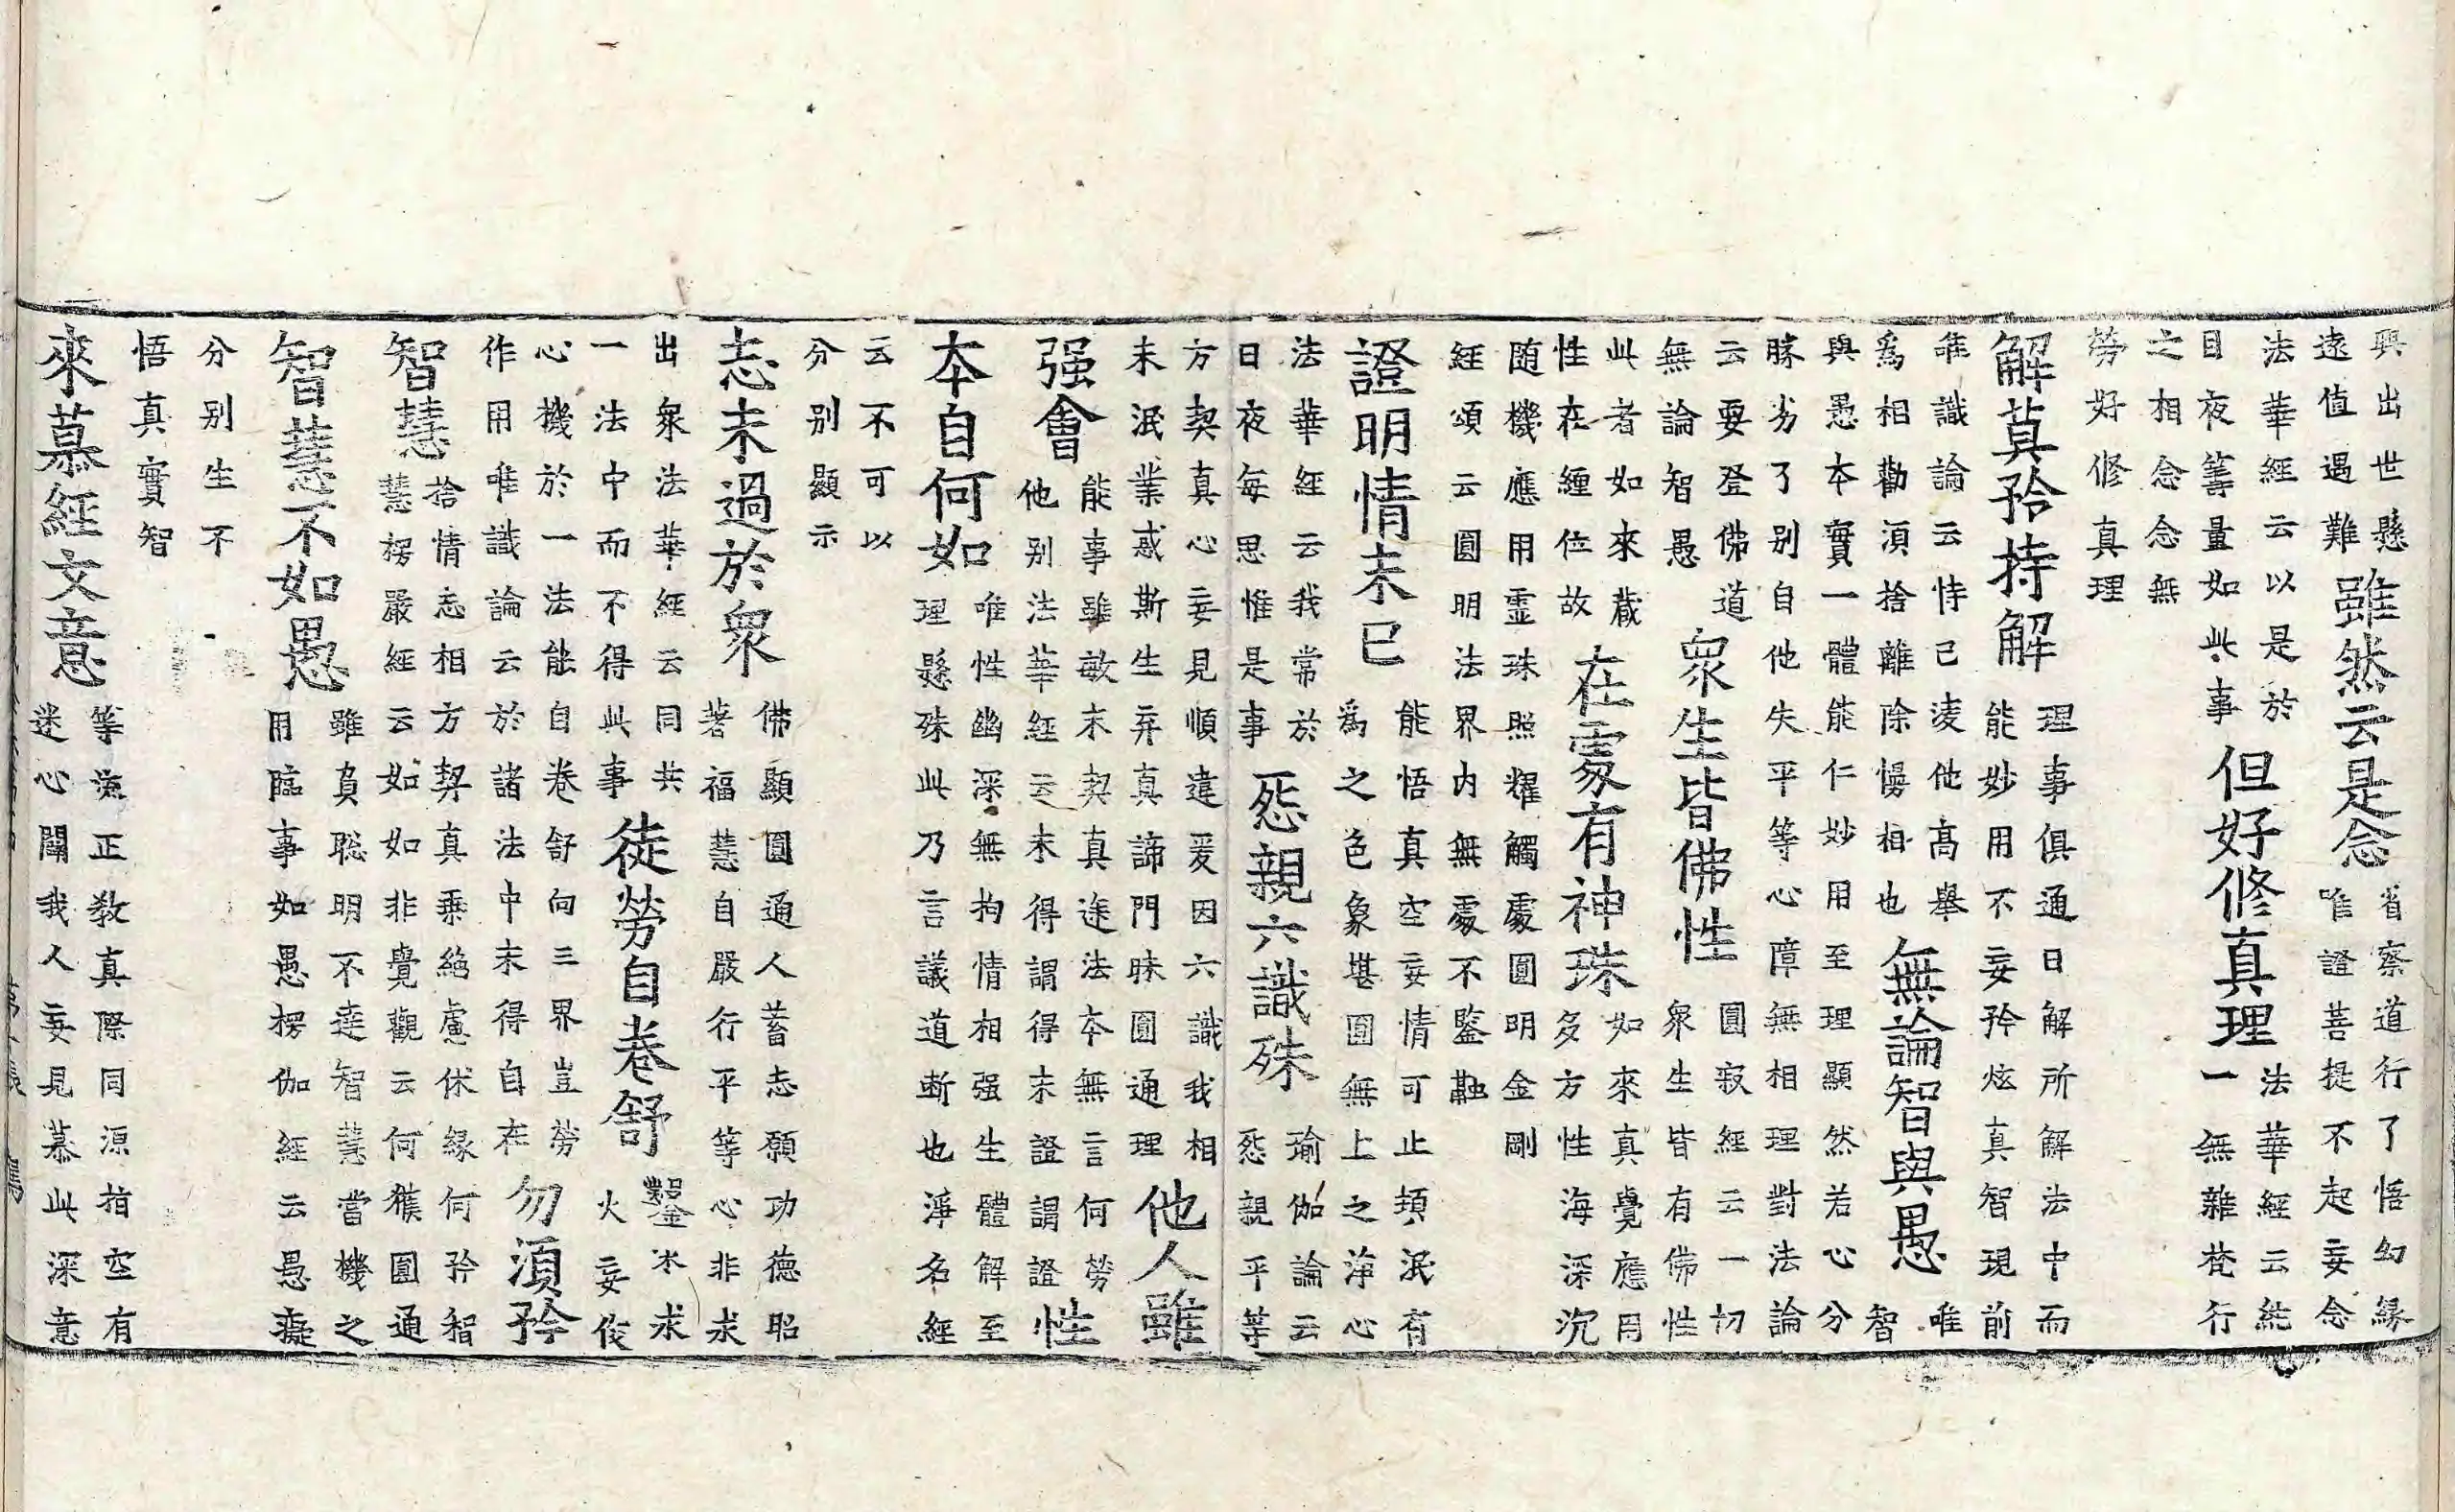 興出世懸
遠值遇難
雖然云是念
省察道行了悟幻緣
唯證菩提不起妄念
法華經云以是於
日夜筭量如此事
但好修真理
法華經云純
一無雜梵行
之相念念無
勞好修真理
解真矜持解
理事俱通日解所解法中而
能妙用不妄矜炫真智現前
唯識論云恃己凌他高舉
爲相勸須捨離除慢相也
無論智與愚
唯
智
與愚本實一體能仁妙用至理顯然若心分
勝劣了别自他失平等心障無相理對法論
云要登佛道
無論智愚
衆生皆佛性
圓寂經云一切
衆生皆有佛性
此者如來藏
性在纏位故
在處有神珠
如來真覺應用
多方性海深沉
随機應用霊珠照耀觸處圓明金剛
經頌云圓明法界内無處不鑒融
證明情未已
能悟真空妄情可止頓泯有
爲之色象堪圓無上之淨心
法華經云我常於
日夜每思惟是事
惌親六識殊
瑜伽論云
惌親平等
方契真心妄見順違爰因六識我相
未泯業惑斯生弃真諦門昧圓通理
他人雖
强會
能事雖敏未契真逺法本無言何勞
他别法華經云未得謂得未證謂證
性
本自何如
唯性幽深無拘情相强生體解至
理懸殊此乃言議道断也淨名經
云不可以
分别顯示
志未過於衆
佛顯圓通人蓄志願功德昭
著福慧自嚴行平等心非求
出衆法華經云同共
一法中而不得此事
徒勞自卷舒
鑿氷求
火妄役
心機於一法能自卷舒向三界豈勞
作用唯識論云於諸法中未得自在
勿須矜
智慧
捨情忘相方契真乗絶慮休緣何矜智
慧楞嚴經云如如非覺觀云何獲圓通
智慧不如愚
雖負聡明不達智慧當機之
用臨事如愚楞伽經云愚癡
分别生不
悟真實智
來慕經文意
等流正教真際同源指空有
迷心闢我人妄見慕此深意